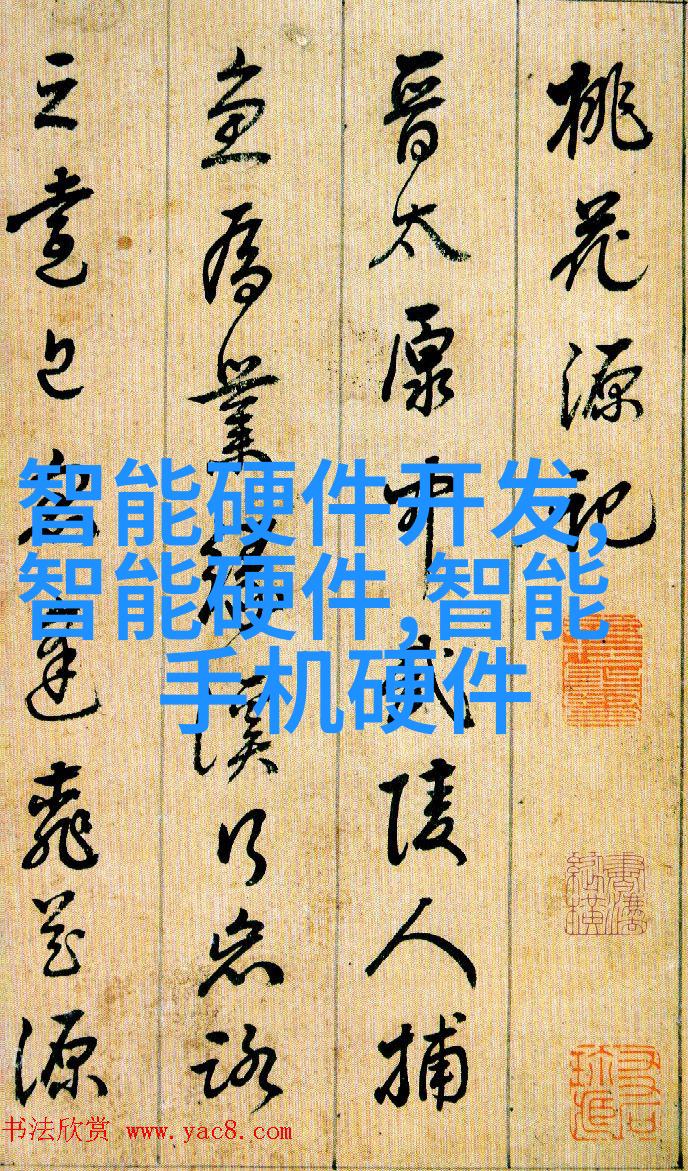 桃花源記
晉太原中武陵人捕
魚為業緣溪行忘路
之逢花源
智能硬件开发,
智能硬件,智能
手机硬件
书法欣赏 www.yac8.com